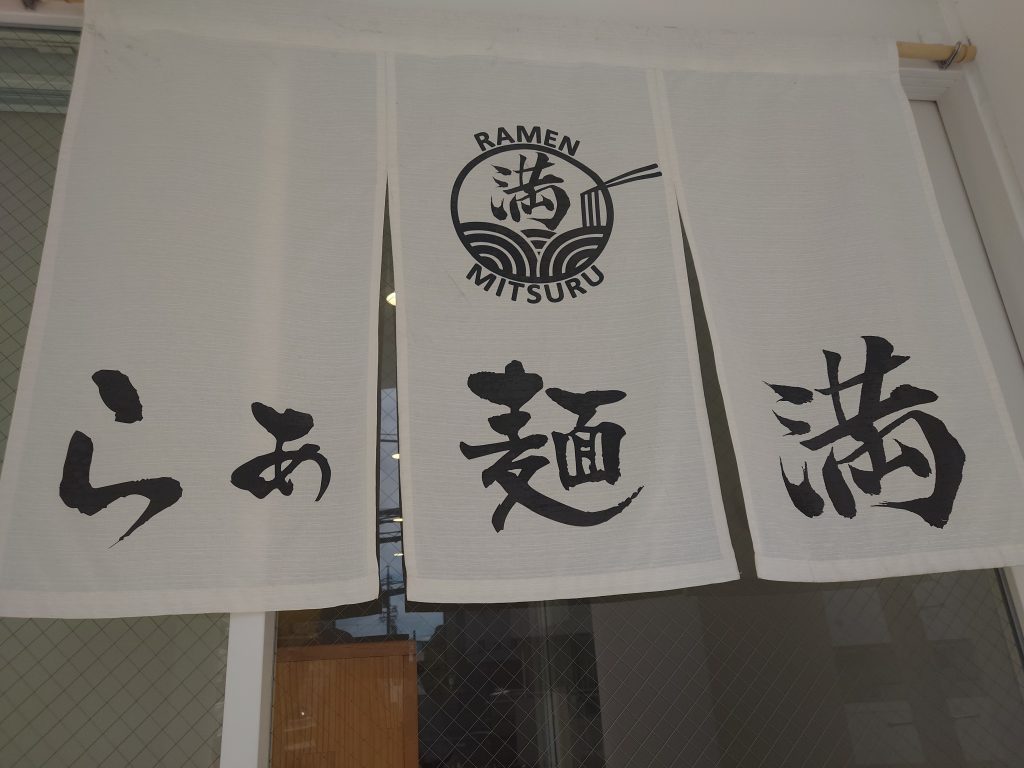 RAMEN
満
MITSURU
らぁ麺満